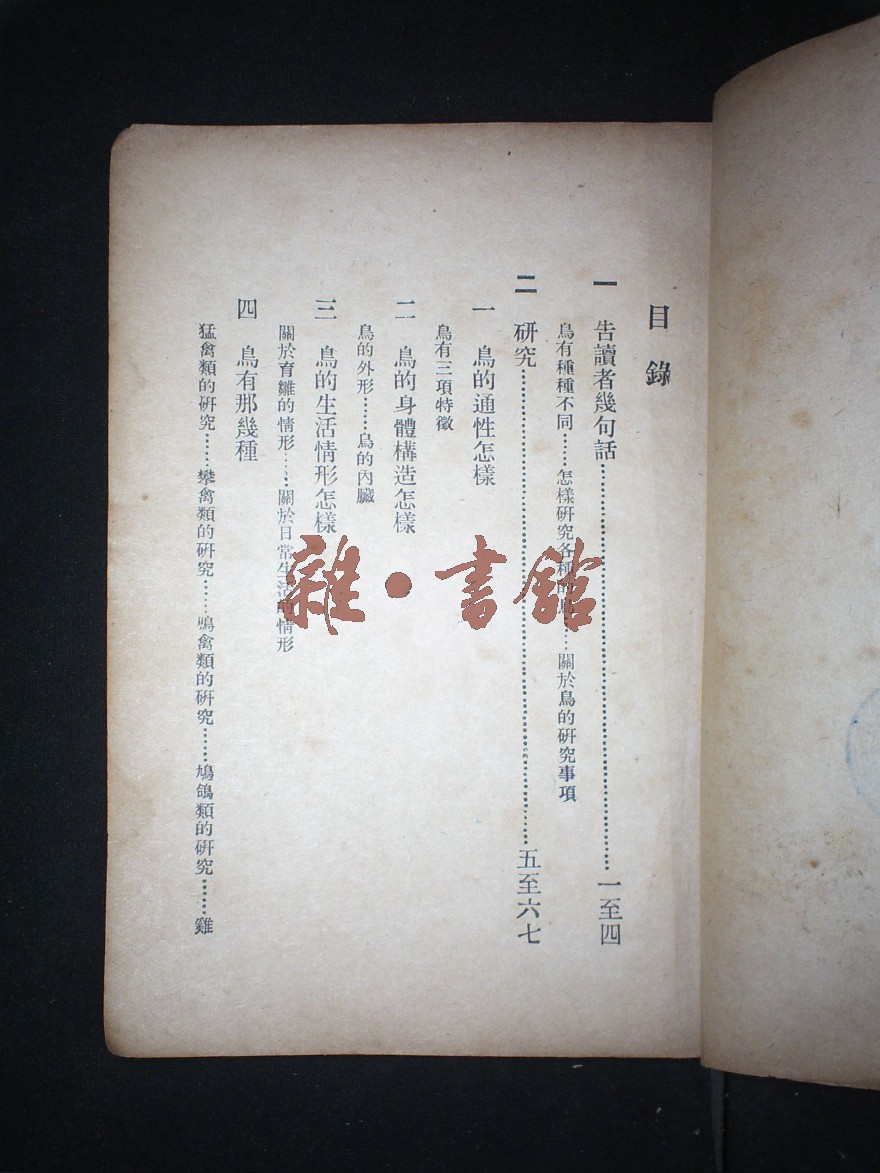 目錄
一 告讀者幾句話……一至四
鳥有種種不同……怎樣研究各種的鳥……關於鳥的研究事項
二 研究……五至六七
一 鳥的通性怎樣
鳥有三項特徵
二 鳥的身體構造怎樣
鳥的外形……鳥的內臟
三 鳥的生活情形怎樣
關於育雛的情形……關於日常生活的情形
四 鳥有那幾種
猛禽類的研究……攀禽類的研究……鳴禽類的研究……鳩鴿類的研究……雞
雜·書館